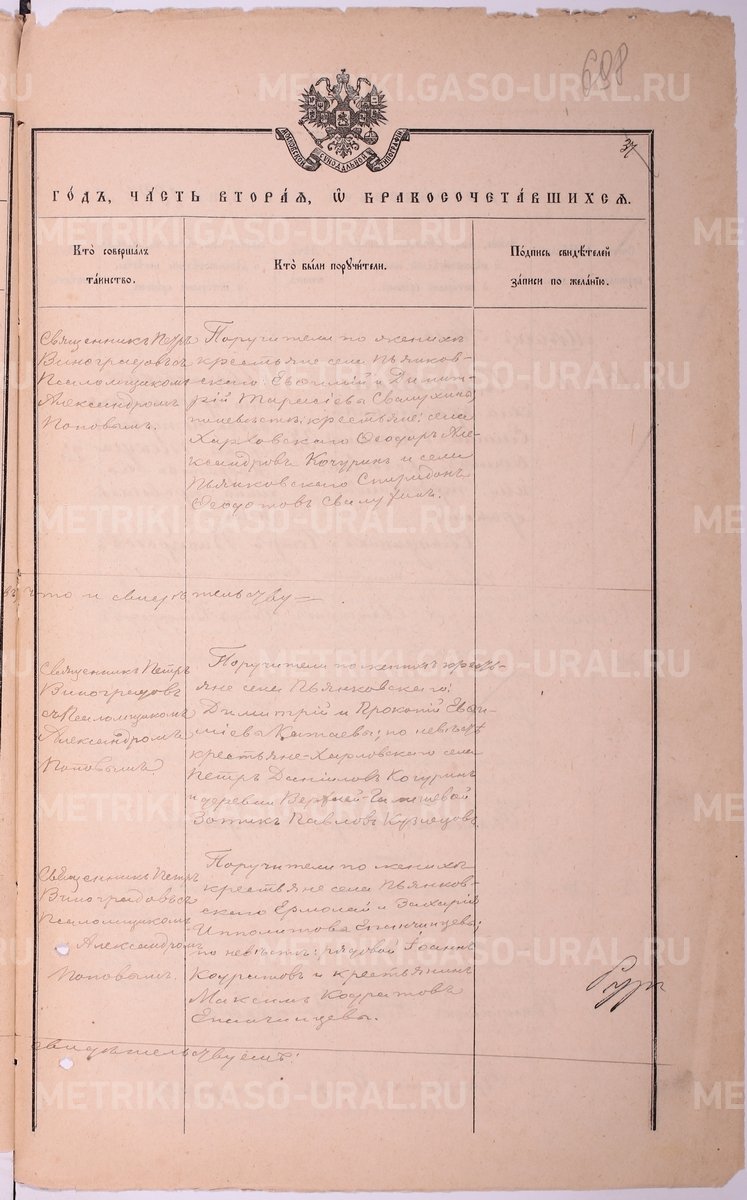 688
37
МОСКОВСКОЙ СѴНОДАЛЬНОЙ ТИПОГРАФІИ
ГО́ДЪ, ЧА́СТЬ ВТОРА́Я, Ѡ БРАКОСОЧЕТА́ВШИХСЯ.
Кто̀ соверша́лъ
та́инство.
Кто̀ бы́ли порꙋчи́тели.
По́дпись свидѣ́телей
за́писи по жела́нїю.
Священникъ Петръ
Виноградовъ съ
Псаломщикомъ
Александромъ
Поповымъ.
Поручители по женихѣ
крестьяне села Пьянков-
скаго Евѳимій и Димит-
рій Тарасіевы Свалухины;
по невѣстѣ: крестьяне: села
Харловскаго Ѳеодоръ Але-
ксандровъ Кочуринъ и села
Пьянковскаго Спиридонъ
Ѳеодотовъ Свалухинъ.
что и свидѣтельствую
Священникъ Петръ
Виноградовъ
съ Псаломщикомъ
Александромъ
Поповымъ
Поручители по женихѣ кресть-
яне села Пьянковскаго:
Димитрій и Прокопій Евѳи-
міевы Катаевы; по невѣстѣ
крестьяне Харловскаго села
Петръ Даніиловъ Кочуринъ
и деревни Верхней
Зотикъ Павловъ Кузнецовъ
Священникъ Петръ
Виноградовъ съ
Псаломщикомъ
Александромъ
Поповымъ.
Поручители по женихѣ
крестьяне села Пьянков-
скаго Ермолай и Захарій
Ипполитовы Епанчинцевы;
по невѣстѣ: рядовой Іоаннъ
Кодратовъ и крестьянинъ
Максимъ Кодратовъ
Епанчинцевы.
свидѣтельствуемъ:
METRIKI.GASO-URAL.RU